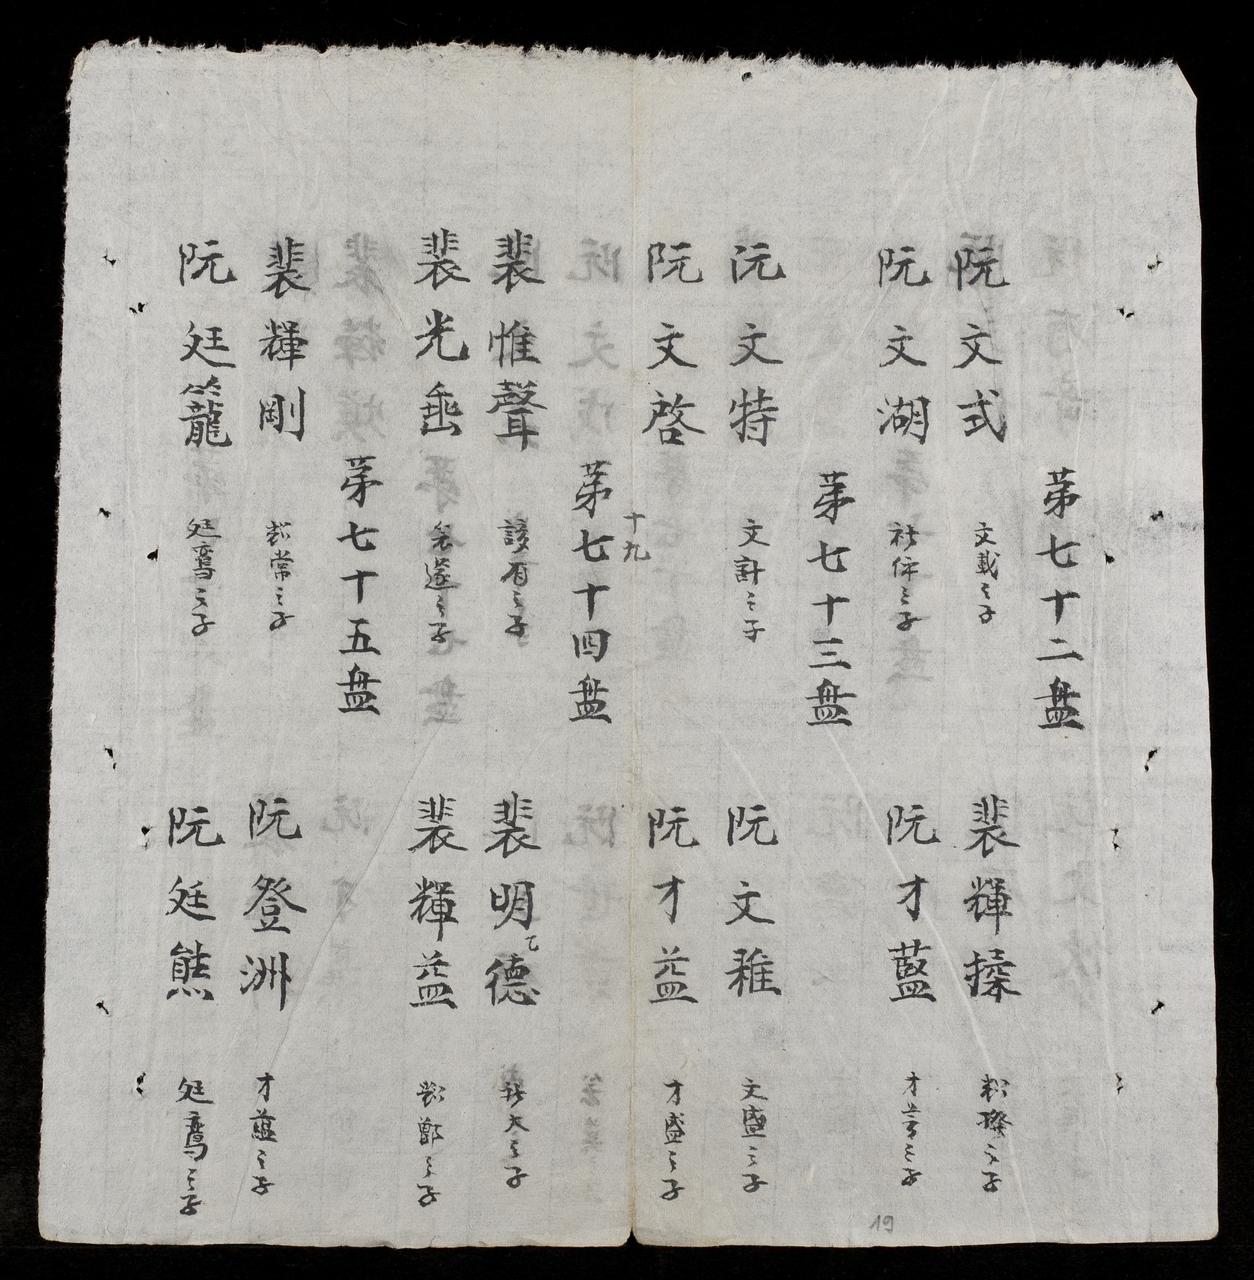 苐七十二盘
阮文式 文載之子
裴輝搡 之子
阮文湖 社伄之子
阮才藍 才之子
苐七十三盘
阮文特 文計之子
阮文稚 文盛之子
阮文啓
阮才益 才盛之子
十九
苐七十四盘
裴惟聲 該有之子
裴明德 社大之子
裴光垂 之子
裴輝益 鄭之子
苐七十五盘
裴輝剛 常之子
阮登洲 才藍之子
阮廷籠 廷鸞之子
阮廷熊 廷鸞之子
19